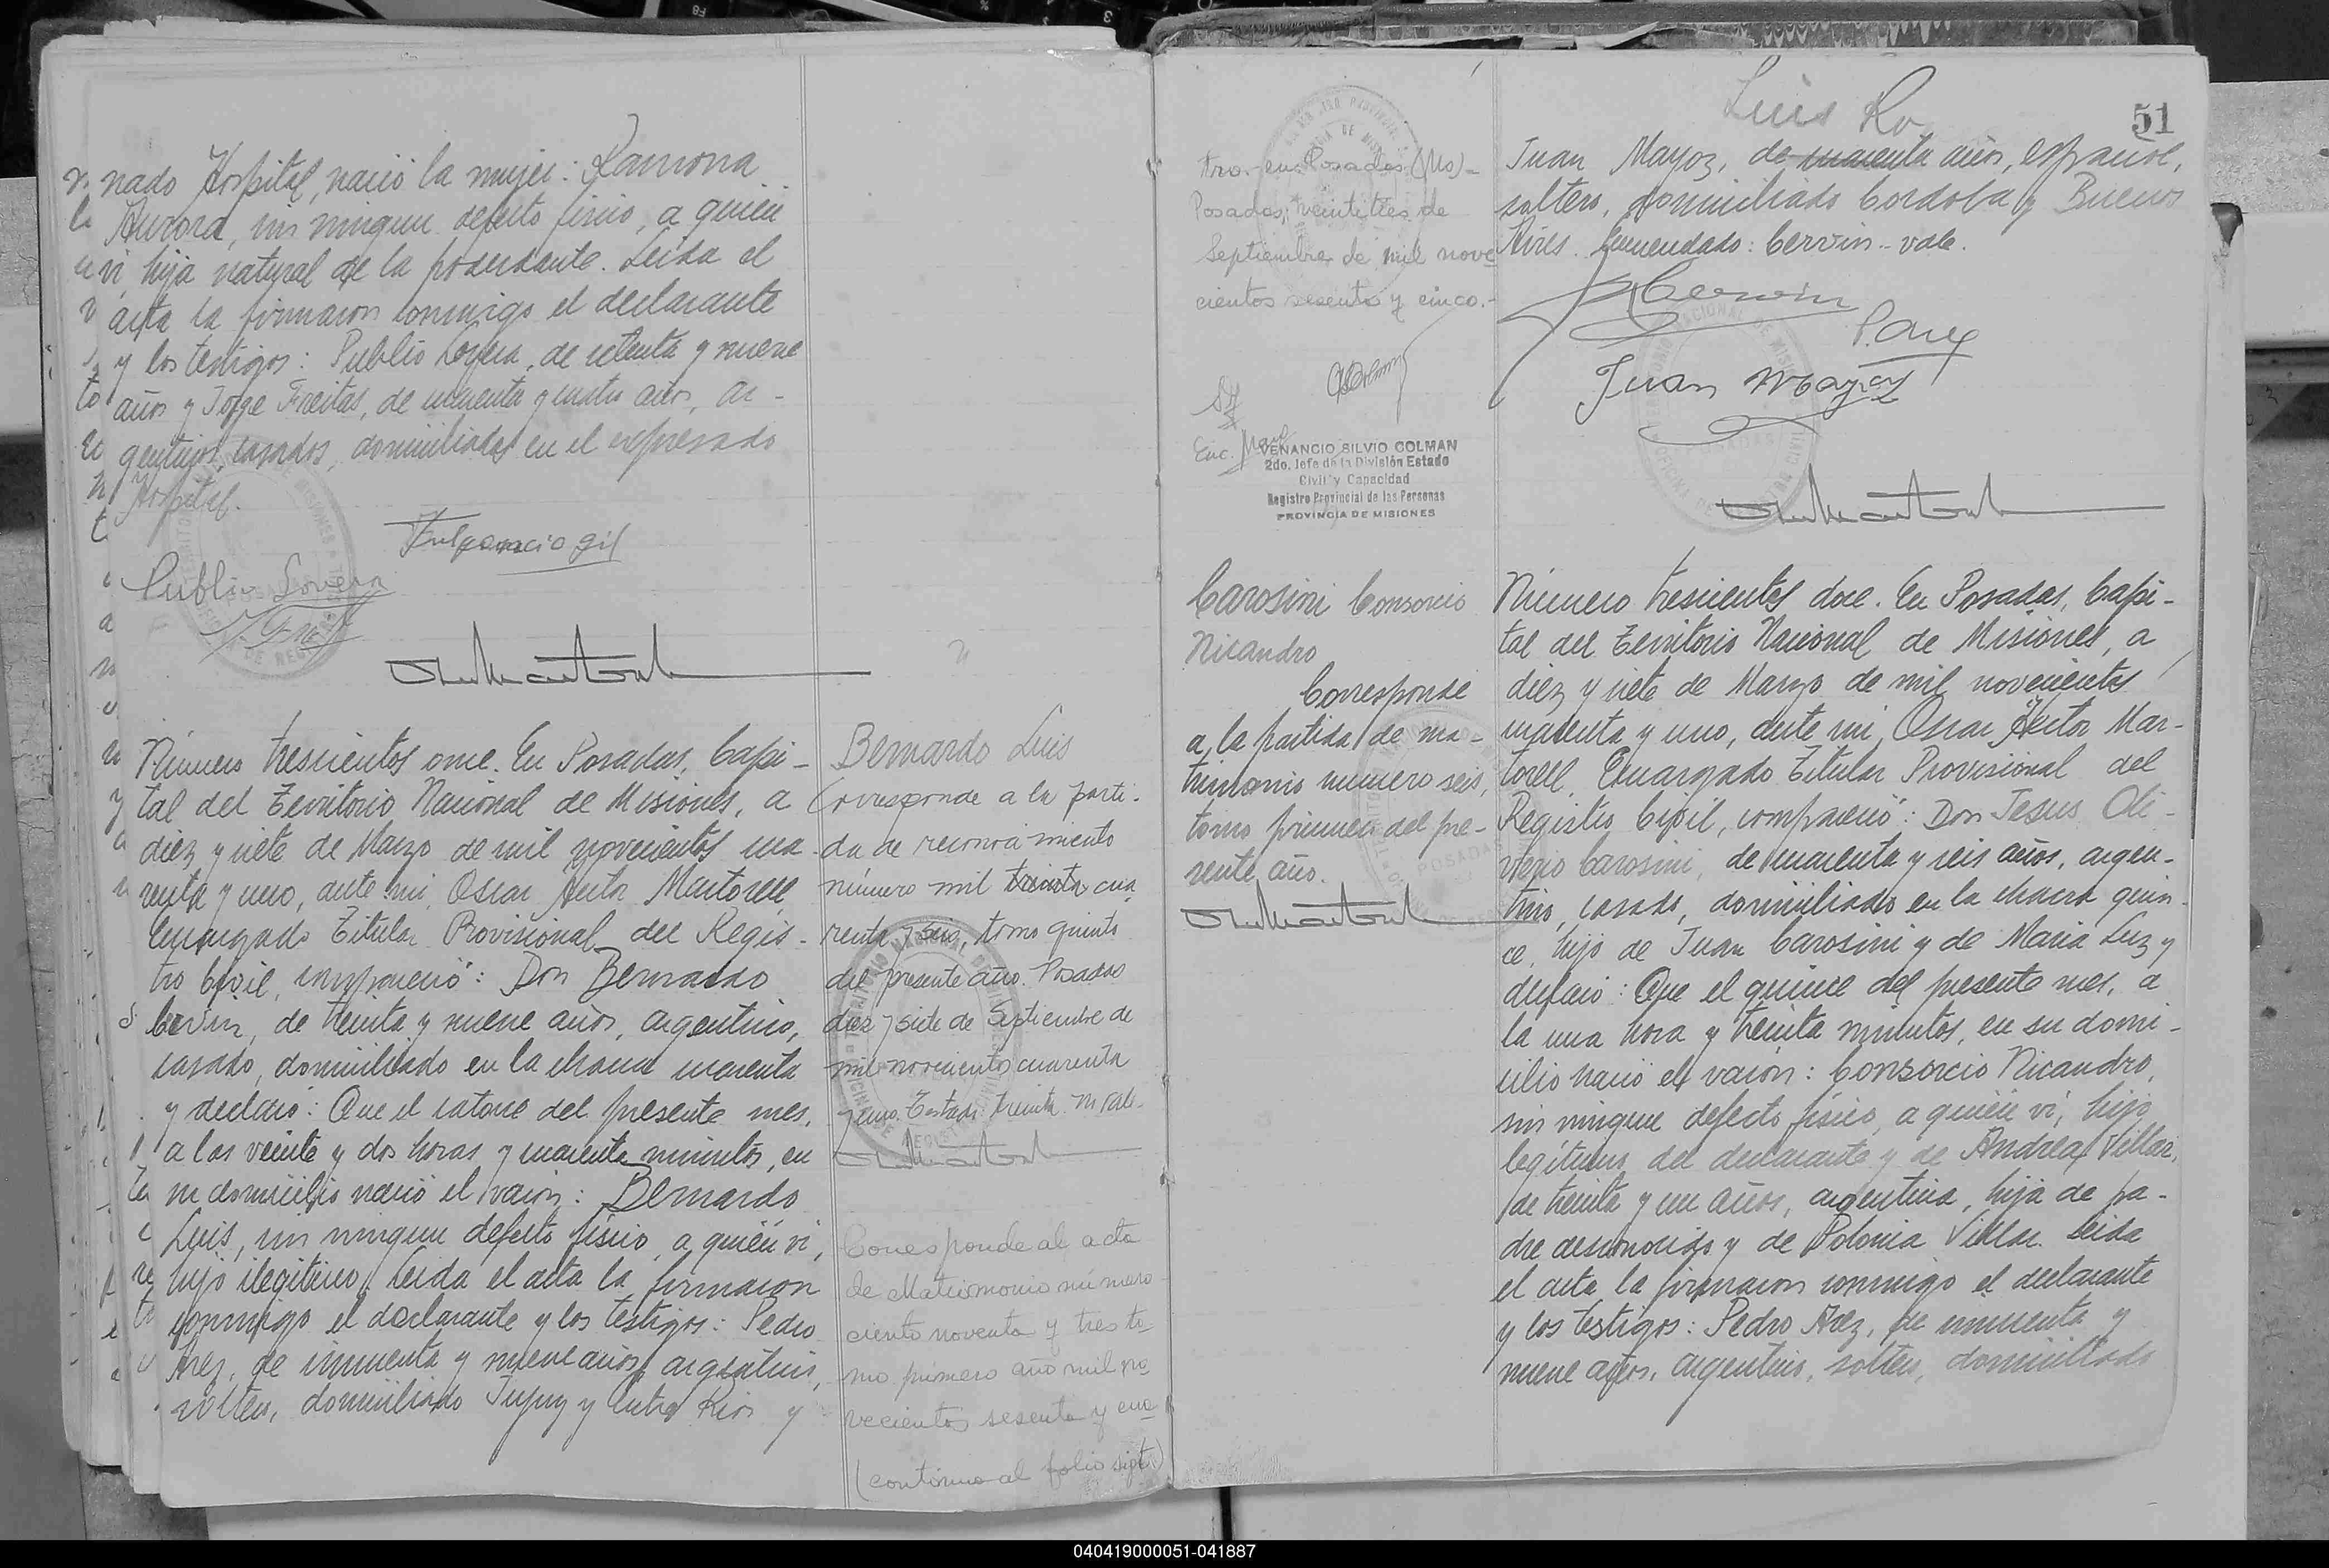 nado Hospital, nació la mujer: Ramona
Aurora, sin ningun defecto físico, a quien
vi, hija natural de la poderdante. Leída el
acta la firmaron conmigo el declarante
y los testigos: Publio Lovera, de setenta y nueve
años y Jorge Freitas, de cuarenta y cuatro años, ar-
gentinos, casados, domiciliados en el expresado
Hospital.
Fulgencio gil
Publio Lovera
Número trescientos once. En Posadas, Capi-
tal del Territorio Nacional de Misiones, a
diez y siete de Marzo de mil novecientos cua-
renta y uno, ante mi, Oscar Hector Martorell
Encargado Titular Provisional del Regis-
tro Civil, compareció: Don Bernardo
Cervin, de treinta y nueve años, argentino,
casado, domiciliado en la chacra cuarenta
y declaró: Que el catorce del presente mes,
a las veinte y dos horas y cuarenta minutos, en
su domicilio nació el varon: Bernardo
Luis, sin ningun defecto físico, a quién vi,
hijo ilegítimo. Leída el acta la firmaron
conmigo el declarante y los testigos: Pedro
Arez, de cincuenta y nueve años, argentino,
soltero, domiciliado Jujuy y Entre Rios y
Bernardo Luis
Corresponde a la parti-
da de reconocimiento
número mil treinta cua
renta y seis, tomo quinto
del presente año. Posadas
diez y siete de Septiembre de
mil novecientos cuarenta
y uno. Testado: treinta. No vale.
Corresponde al acta
de Matrimonio número
ciento noventa y tres to-
mo primero año mil no
vecientos sesenta y cua
(continua al folio sigte)
51
Luis Ro
tro. en Posadas (Ms)-
Posadas, veintitres de
Septiembre de mil nove
cientos sesenta y cinco.-
VENANCIO SILVIO COLMAN
2do. Jefe de la División Estado
Civil y Capacidad
Registro Provincial de las Personas
PROVINCIA DE MISIONES
Juan Mayoz, de cuarenta años, español,
soltero, domiciliado Cordoba y Buenos
Aires. Enmendado: Cervin - vale.
Cervin
P. Arez
Juan Mayoz
Carosini Consorcio
Nicandro
Corresponde
a la partida de ma-
trimonio numero seis,
tomo primero del pre-
sente año.
Número trescientos doce. En Posadas, Capi-
tal del Territorio Nacional de Misiones, a
diez y siete de Marzo de mil novecientos
cuarenta y uno, ante mi, Oscar Hector Mar-
torell, Encargado Titular Provisional del
Registro Civil, compareció: Don Jesus Oli-
verio Carosini, de cuarenta y seis años, argen-
tino, casado, domiciliado en la chacra quin-
ce, hijo de Juan Carosini y de Maria Luz y
declaró: Que el quince del presente mes, a
la una hora y treinta minutos, en su domi-
cilio nació el varón: Consorcio Nicandro,
sin ningun defecto físico, a quién vi, hijo
legítimo del declarante y de Andrea Villar,
de treinta y un años, argentina, hija de pa-
dre desconocido y de Polonia Villar. Leída
el acta la firmaron conmigo el declarante
y los testigos: Pedro Arez, de cincuenta y
nueve años, argentino, soltero, domiciliado
040419000051-041887